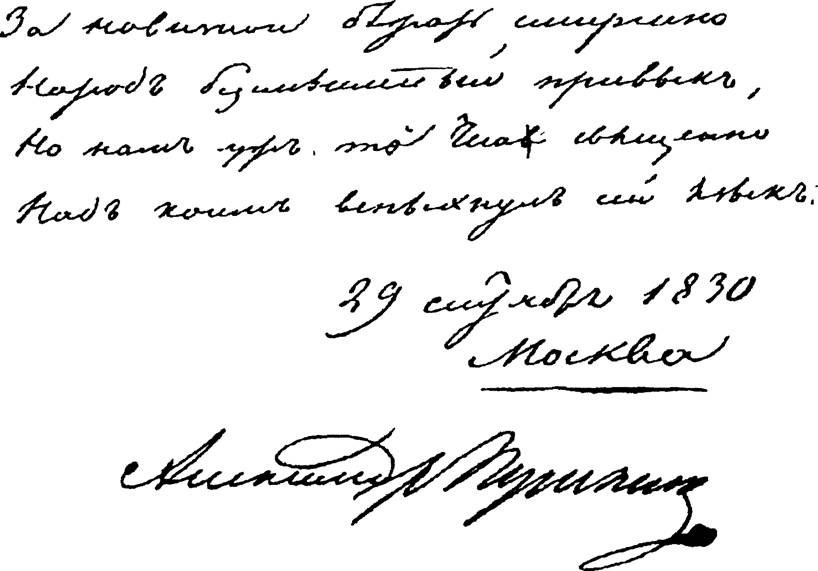 За новизной бѣжать смиренно
Народъ безсмысленный привыкъ,
Но намъ ужъ то чело священно
Надъ коимъ вспыхнулъ сей языкъ.
29 сентябрь 1830
Москва
Александр Пушкин